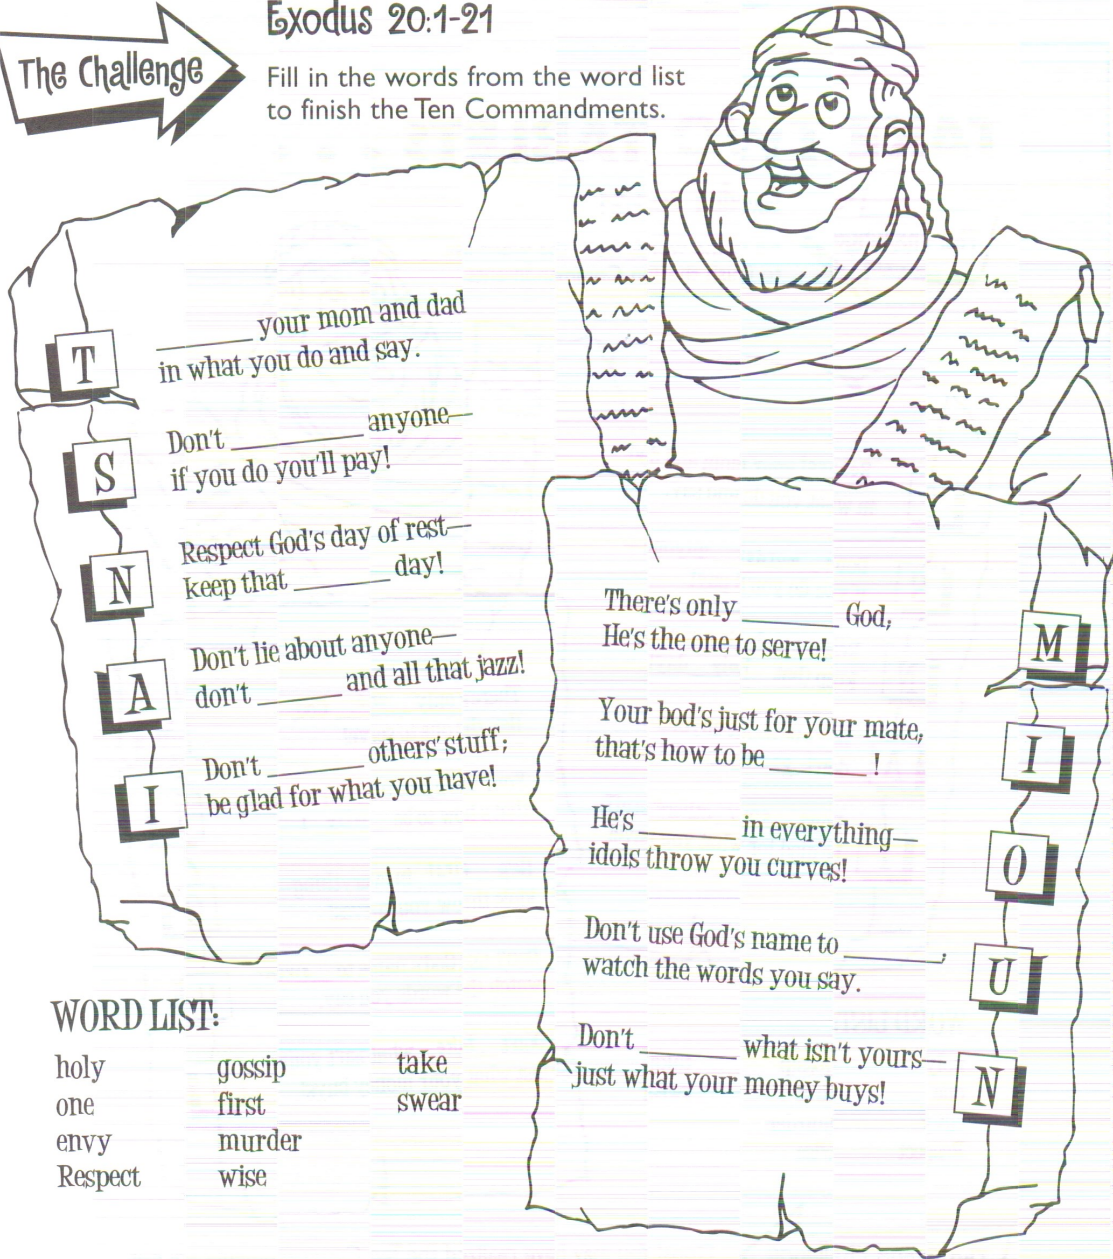 The Challenge
Exodus 20:1-21
Fill in the words from the word list
to finish the Ten Commandments.
T
________ your mom and dad
in what you do and say.
S
Don't ___________ anyone—
if you do you'll pay!
N
Respect God's day of rest—
keep that ________ day!
A
Don't lie about anyone—
don't _______ and all that jazz!
I
Don't ________ others' stuff;
be glad for what you have!
M
There's only ________ God,
He's the one to serve!
I
Your bod's just for your mate,
that's how to be ________ !
O
He's ________ in everything—
idols throw you curves!
U
Don't use God's name to ________,
watch the words you say.
N
Don't ________ what isn't yours—
just what your money buys!
WORD LIST:
holy gossip take
one first swear
envy murder
Respect wise